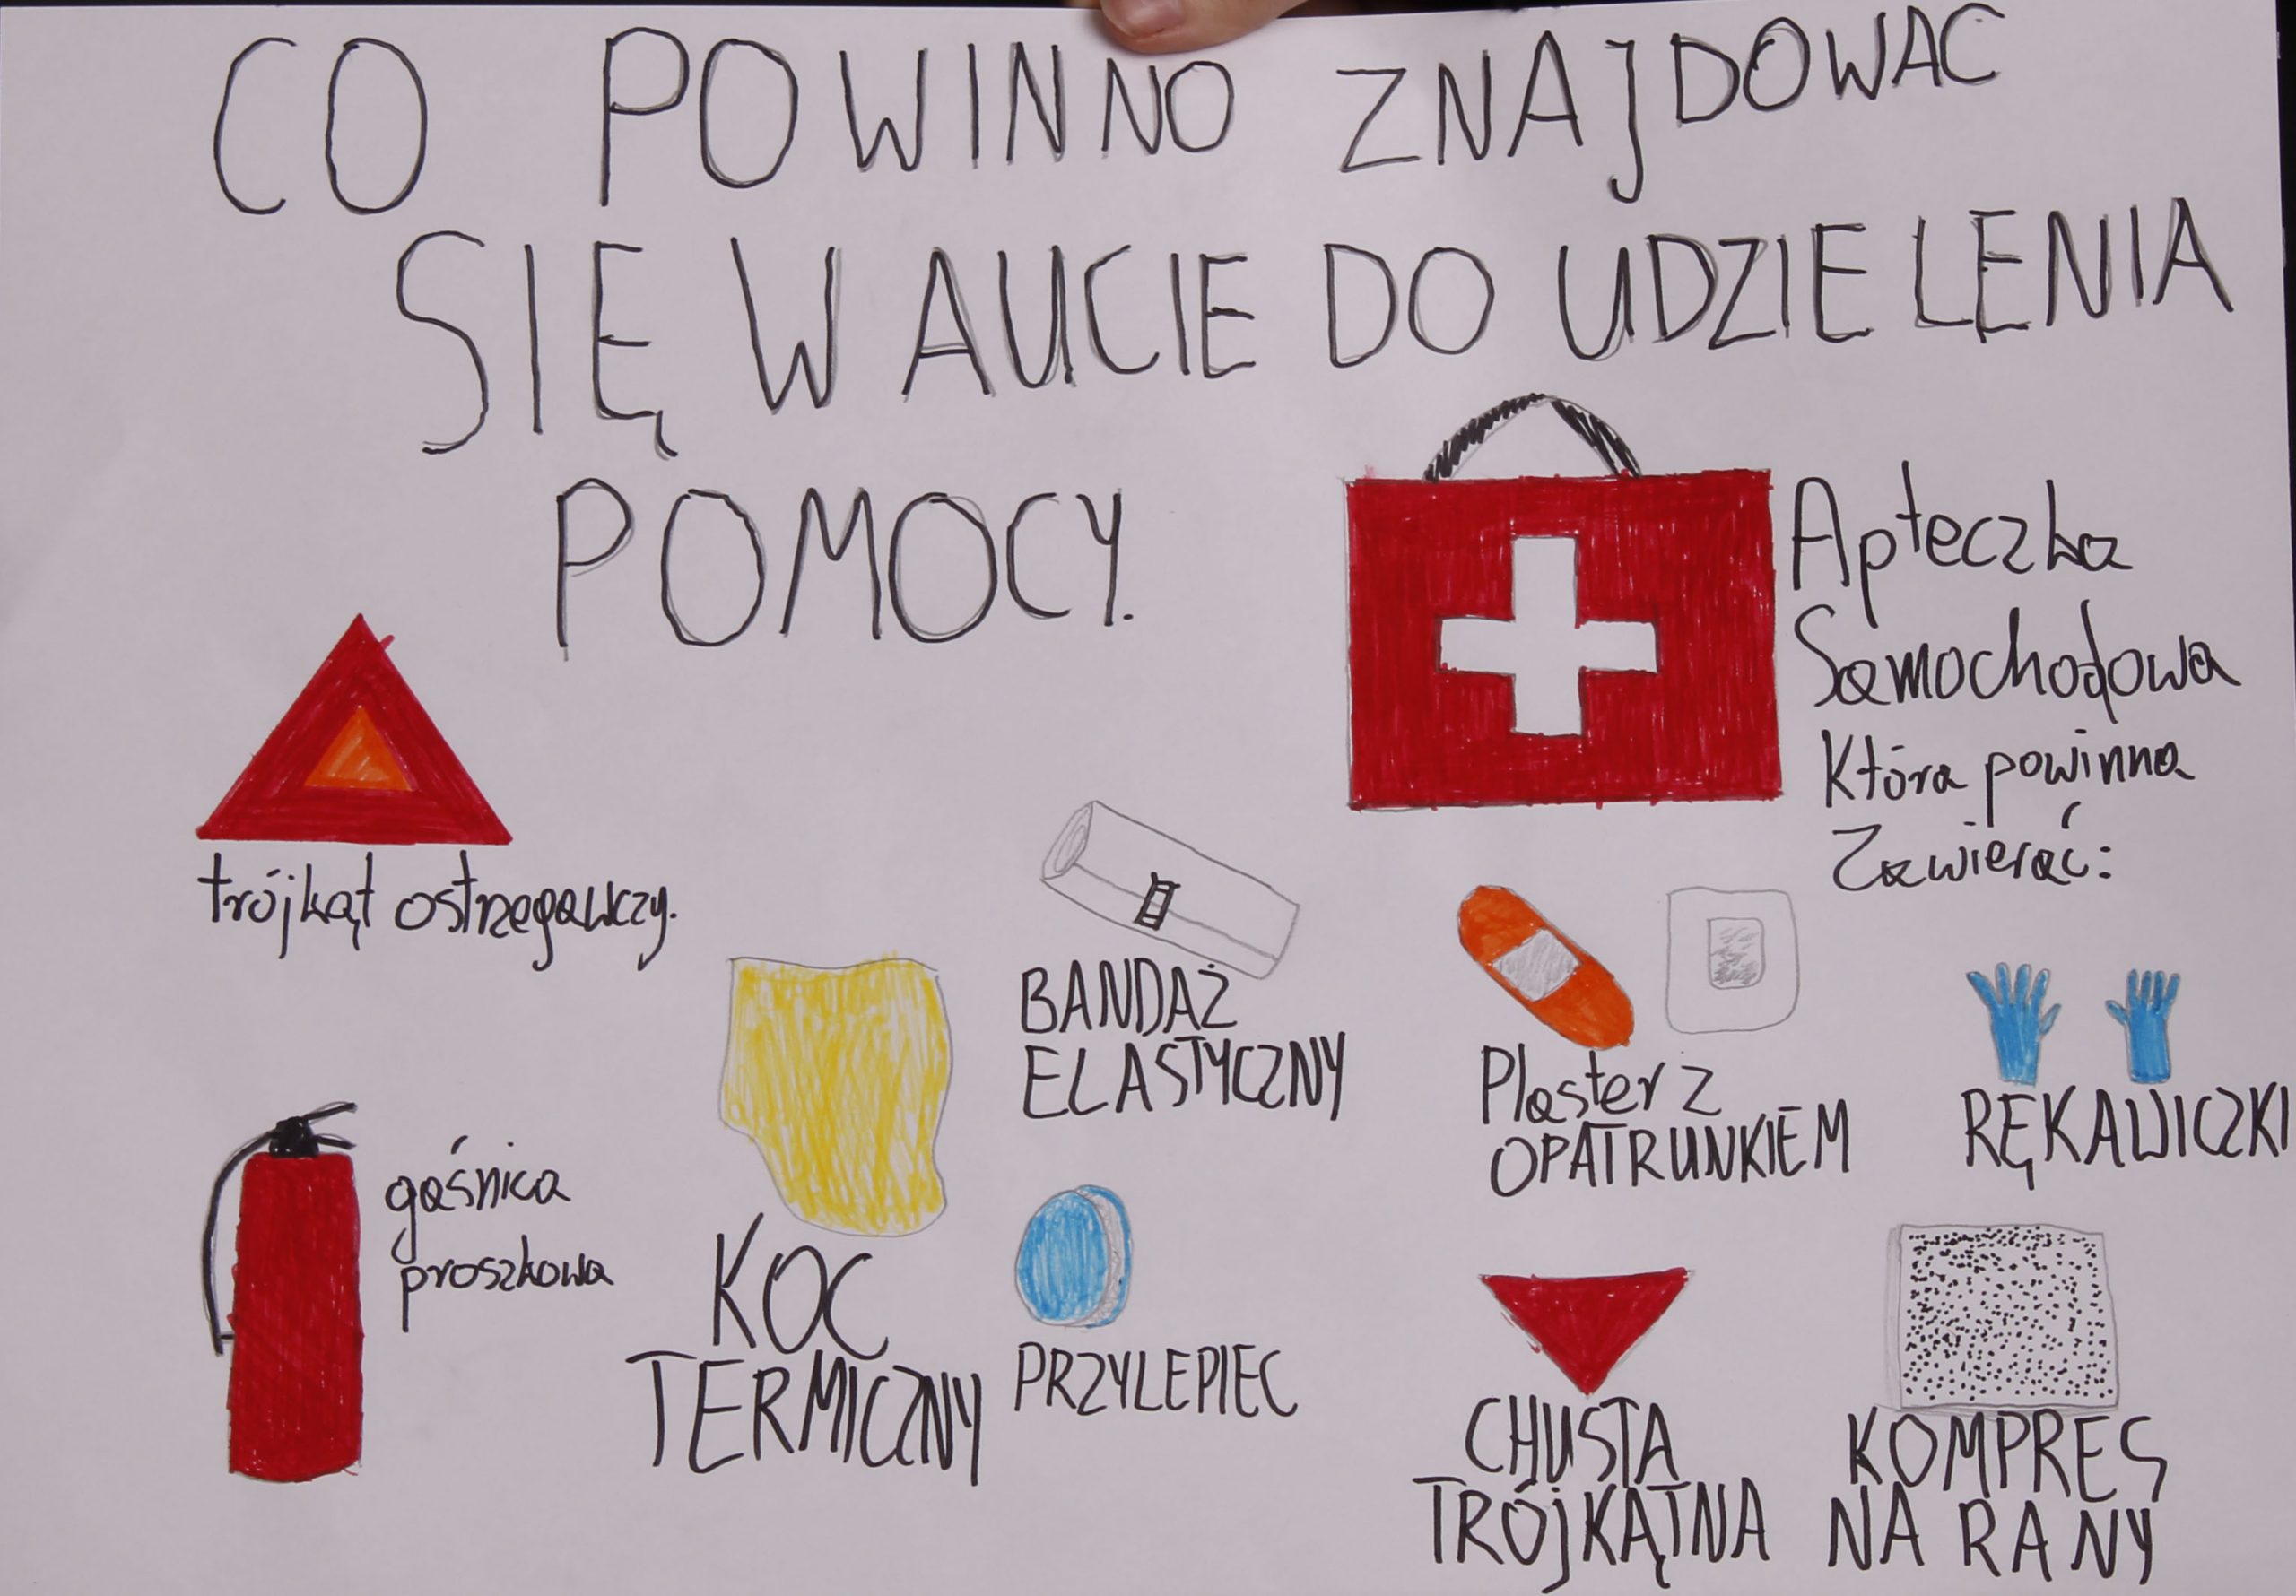 CO POWINNO ZNAJDOWAC
SIĘ W AUCIE DO UDZIELENIA
POMOCY.
Apteczka
Samochodowa
Która powinna
Zawierać:
trójkąt ostrzegawczy.
BANDAŻ
ELASTYCZNY
Plaster z
OPATRUNKIEM
RĘKAWICZKI
gaśnica
proszkowa
KOC
TERMICZNY
PRZYLEPIEC
CHUSTA
TRÓJKĄTNA
KOMPRES
NA RANY